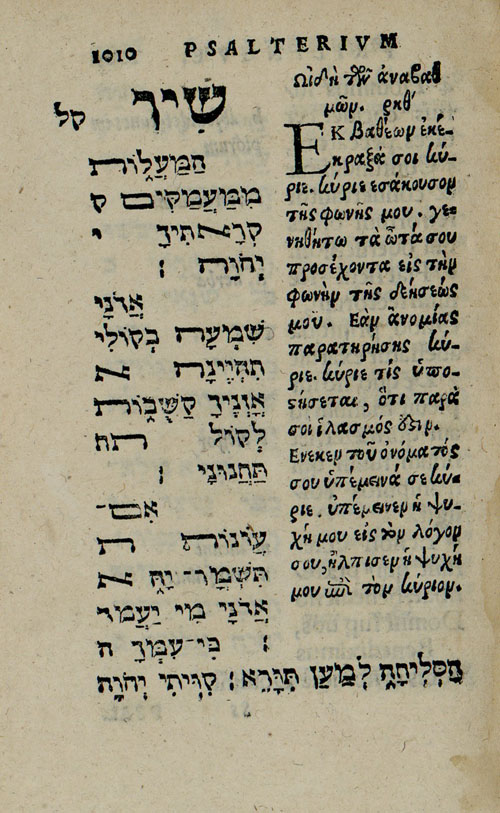 1010 PSALTERIVM
קל שִׁיר
הַמַּעֲלוֹת
מִמַּעֲמַקִּים ק
קְרָאתִיךָ י
יְהוָה׃
אֲדֹנָי
שִׁמְעָה בְקוֹלִי
תִּהְיֶינָה א
אָזְנֶיךָ קַשֻּׁבוֹת
לְקוֹל תת
תַּחֲנוּנָי׃
אִם־
עֲוֹנוֹת ת
תִּשְׁמָר־יָהּ א
אֲדֹנָי מִי יַעֲמֹד
׃ כִּי־עִמְּךָ ה
הַסְּלִיחָה לְמַעַן תִּוָּרֵא׃ קִוִּיתִי יְהוָה
Ὠιδὴ τῶν ἀναβαθ
μῶν. ρκθ´
ΕΚ βαθέων ἐκέ-
κραξά σοι κύ-
ριε. κύριε εσάκουσον
τῆς φωνῆς μου. γε-
νηθήτω τὰ ὦτά σου
προσέχοντα εἰς τὴν
φωνὴν τῆς δεήσεώς
μου. Εὰν ἀνομίας
παρατηρήσης κύ-
ριε. κύριε τίς ὑπο-
στήσεται, ὅτι παρὰ
σοὶ ἱλασμός ἐστιν.
Ενεκεν τοῦ ὀνόματός
σου ὑπέμεινά σε κύ-
ριε. ὑπέμεινεν ἡ ψυ-
χή μου εἰς τὸν λόγον
σου, ἤλπισεν ἡ ψυχή
μου ἐπὶ τὸν κύριον.